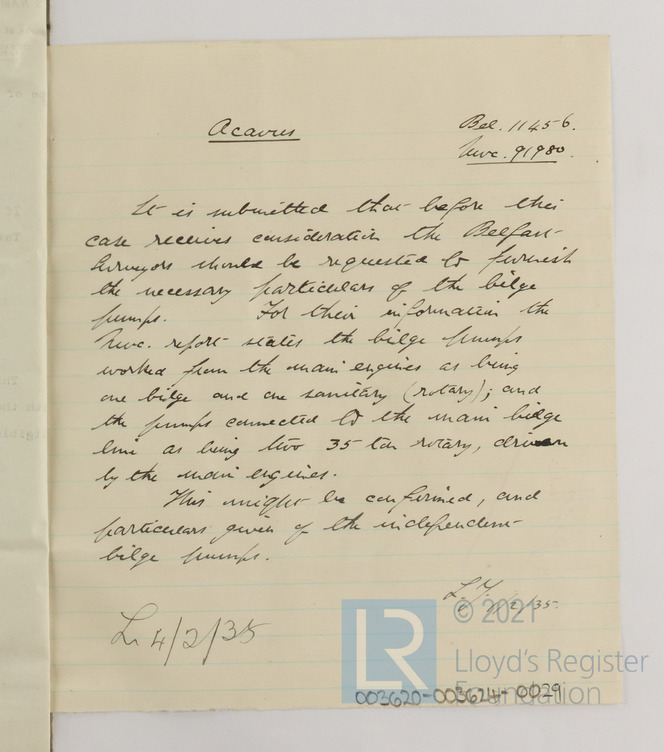 Acavus
Bel. 11456.
Nwc. 91980.
It is submitted that before this
case receives consideration the Belfast
Surveyors should be requested to furnish
the necessary particulars of the bilge
pumps. For their information the
Nwc. report states the bilge pumps
worked from the main engines as being
one bilge and one sanitary (rotary); and
the pumps connected to the main bilge
line as being two 35 ton rotary, driven
by the main engines.
This might be confirmed, and
particulars given of the independent
bilge pumps.
/2/35.
4/2/35
LR
© 2021
Lloyd's Register
Foundation
003620-003624-0029